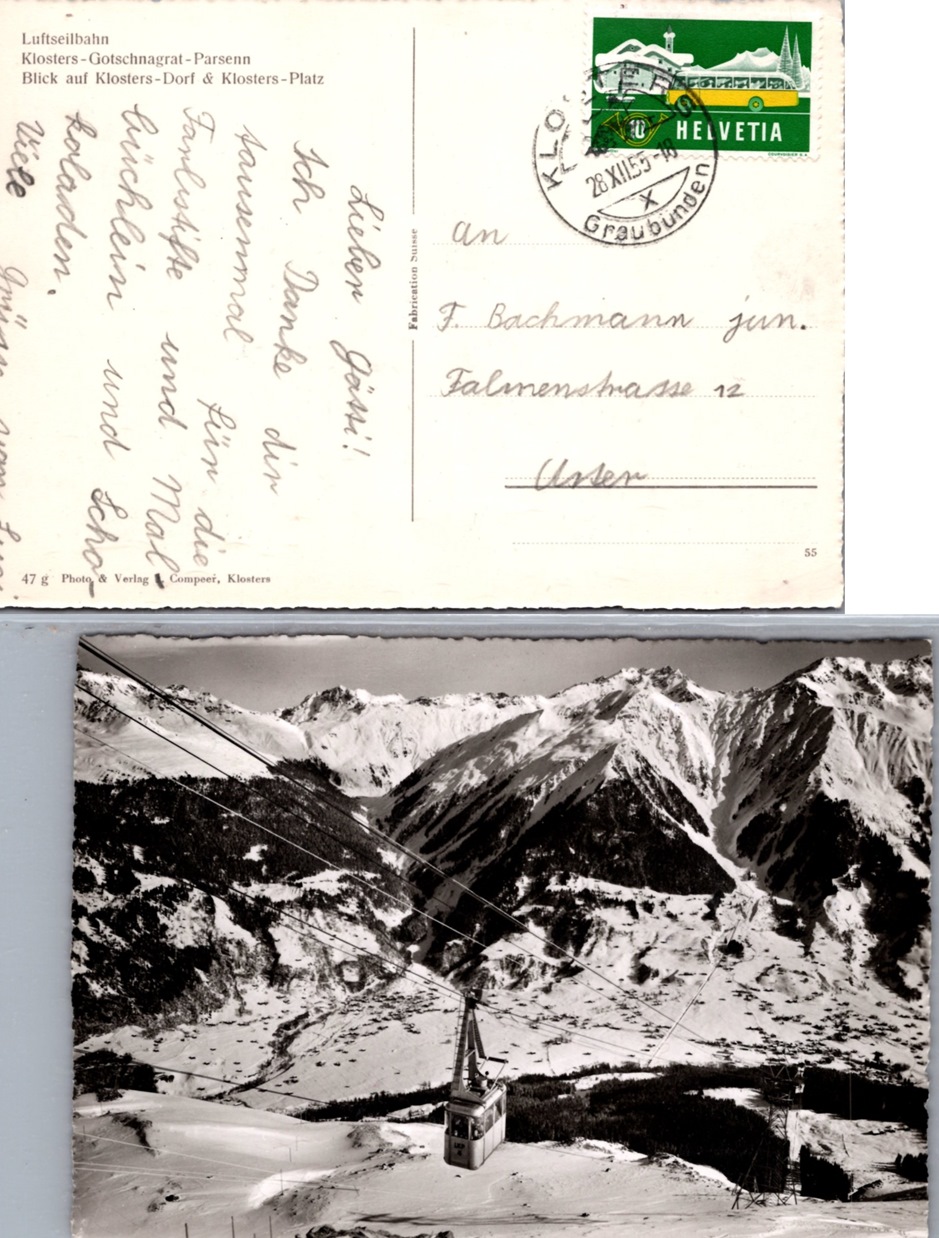 Luftseilbahn
Klosters-Gotschnagrat-Parsenn
Blick auf Klosters-Dorf & Klosters-Platz
Lieber Gössi!
Ich Danke dir
tausenmal für die
Farbstifte und Mal
büchlein und Scho-
koladen.
Viele
Grüsse von
Fabrication Suisse
10 HELVETIA
COURVOISIER S.A.
KLOSTERS
28.XII.55-18
X
Graubünden
an
F. Bachmann jun.
Falmenstrasse 12
Uster
55
47 g Photo & Verlag Compeer, Klosters